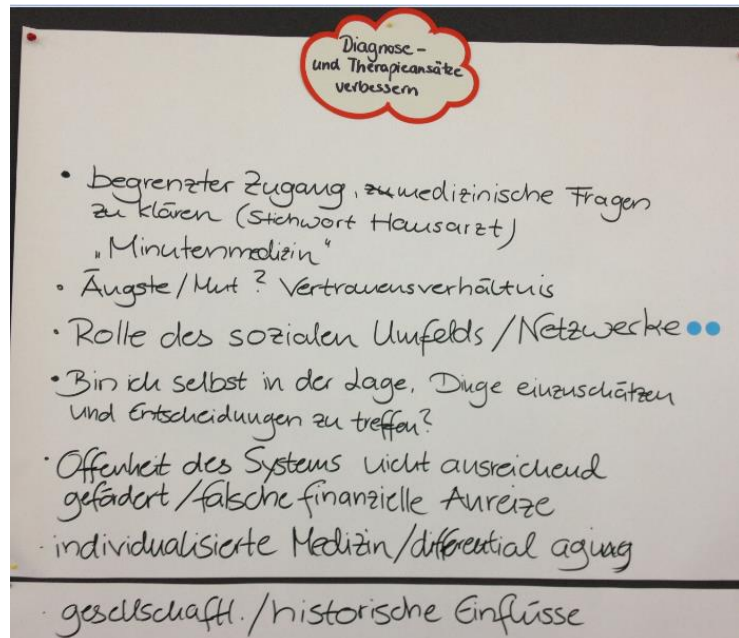 Diagnose-
und Therapieansätze
verbessern
• begrenzter Zugang, zu medizinische Fragen
zu klären (Stichwort Hausarzt)
"Minutenmedizin"
• Ängste/Mut? Vertrauensverhältnis
• Rolle des sozialen Umfelds/Netzwerke
• Bin ich selbst in der Lage, Dinge einzuschätzen
und Entscheidungen zu treffen?
• Offenheit des Systems nicht ausreichend
gefördert/falsche finanzielle Anreize
• individualisierte Medizin/differential aging
• gesellschaftl./historische Einflüsse